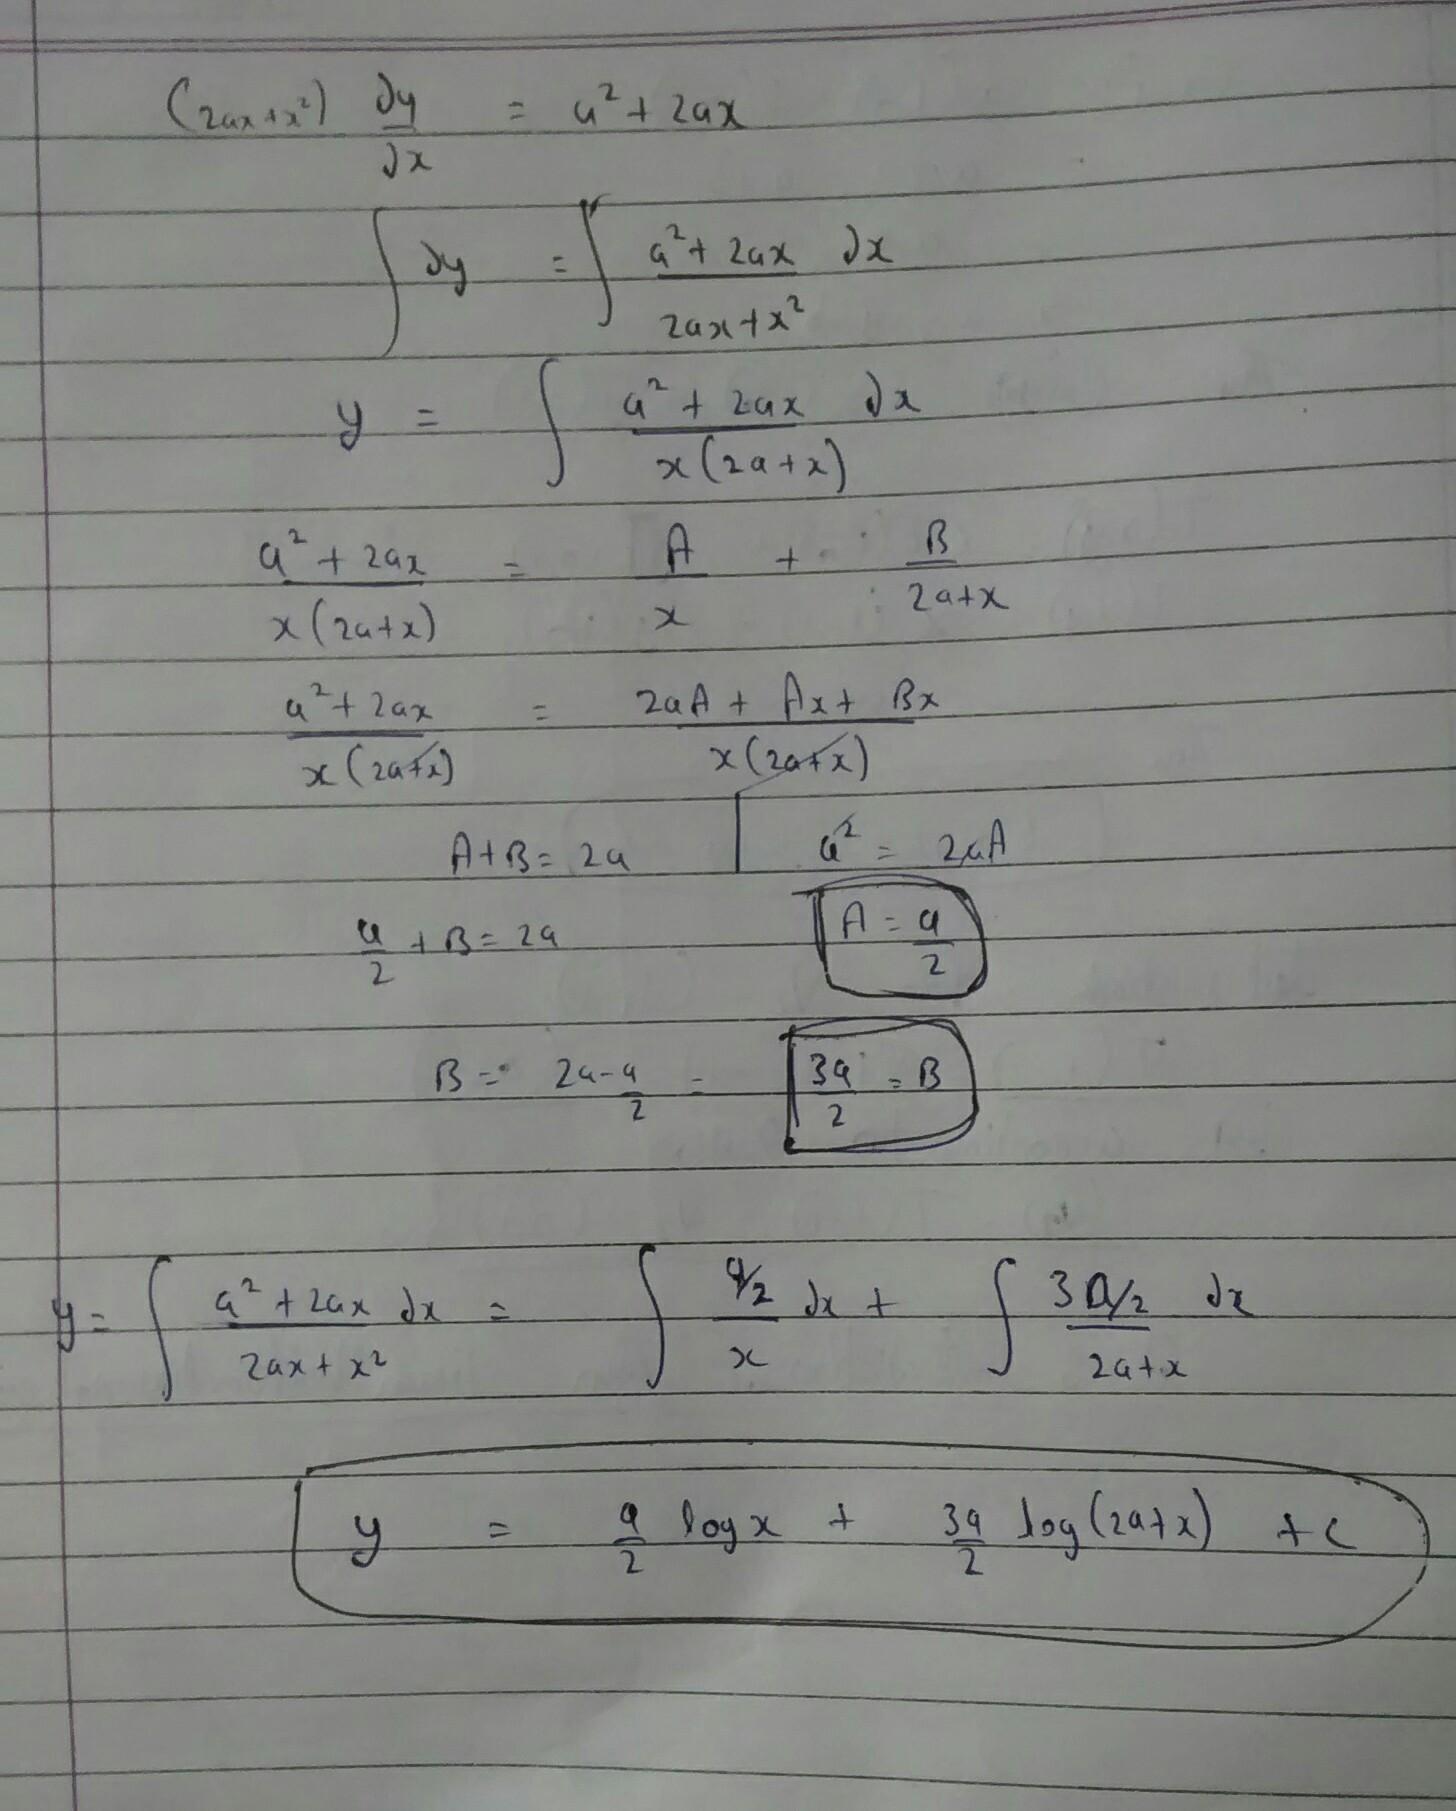 (2ax+x²) dy/dx = a² + 2ax
∫ dy = ∫ (a² + 2ax)/(2ax+x²) dx
y = ∫ (a² + 2ax)/(x(2a+x)) dx
(a² + 2ax)/(x(2a+x)) = A/x + B/(2a+x)
(a² + 2ax)/(x(2a+x)) = (2aA + Ax + Bx)/(x(2a+x))
A+B = 2a | a² = 2aA
a/2 + B = 2a A = a/2
B = 2a - a/2 = 3a/2 = B
y = ∫ (a² + 2ax)/(2ax + x²) dx = ∫ (a/2)/x dx + ∫ (3a/2)/(2a+x) dx
y = a/2 log x + 3a/2 log(2a+x) + c